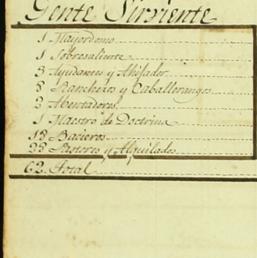 Gente Sirviente
1 Mayordomo
1 Sobresaliente
3 Ayudantes y Ahijador
8 Rancheros y Caballerangos
Abentadores
1 Maestro de Doctrina
Bacieros
Pastores y Alquilados
62 Total